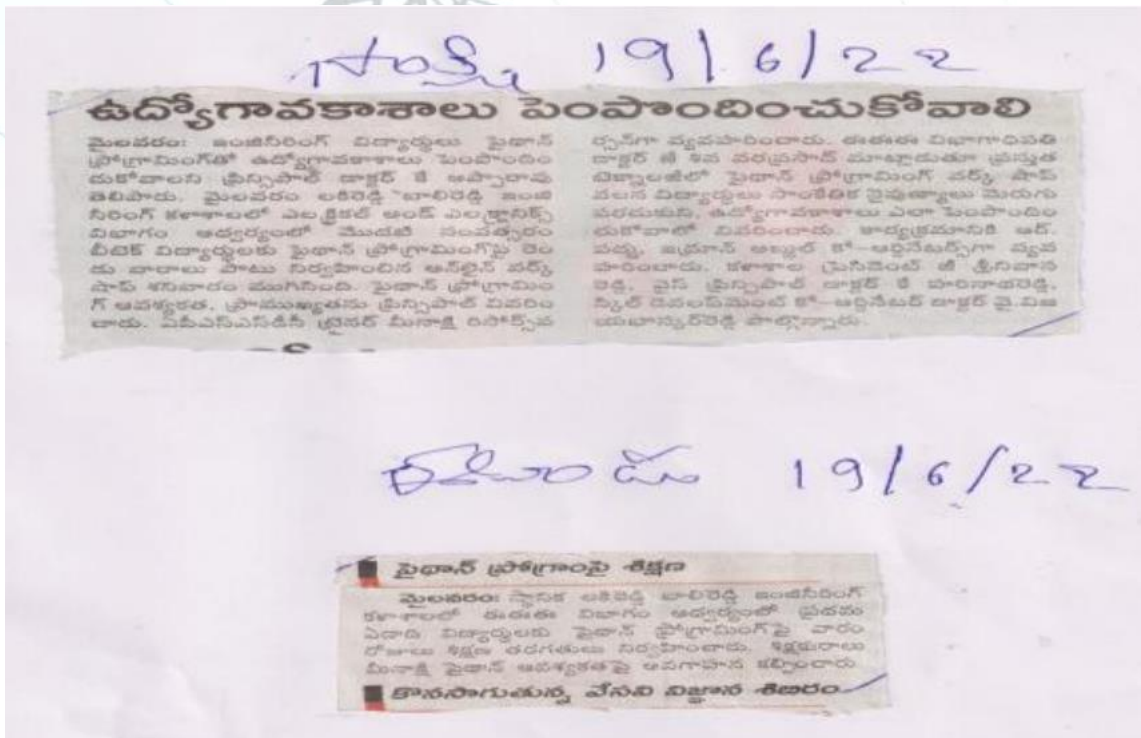 సాక్షి 19/6/22
ఉద్యోగావకాశాలు పెంపొందించుకోవాలి
మైలవరం: ఇంజినీరింగ్ విద్యార్థులు పైథాన్
ప్రోగ్రామింగ్‌తో ఉద్యోగావకాశాలు పెంపొందిం
చుకోవాలని ప్రిన్సిపాల్ డాక్టర్ కే అప్పారావు
తెలిపారు. మైలవరం లకిరెడ్డి బాలిరెడ్డి ఇంజి
నీరింగ్ కళాశాలలో ఎలక్ట్రికల్ అండ్ ఎలక్ట్రానిక్స్
విభాగం ఆధ్వర్యంలో మొదటి సంవత్సరం
బీటెక్ విద్యార్థులకు పైథాన్ ప్రోగ్రామింగ్‌పై రెం
డు వారాలు పాటు నిర్వహించిన ఆన్‌లైన్ వర్క్
షాప్ శనివారం ముగిసింది. పైథాన్ ప్రోగ్రామిం
గ్ ఆవశ్యకత, ప్రాముఖ్యతను ప్రిన్సిపాల్ వివరిం
చారు. ఏపీఎస్ఎస్‌డీసీ ట్రైనర్ మీనాక్షి రిసోర్స్‌ప
ర్సన్‌గా వ్యవహరించారు. ఈఈఈ విభాగాధిపతి
డాక్టర్ జీ శివ వరప్రసాద్ మాట్లాడుతూ ప్రస్తుత
టెక్నాలజీలో పైథాన్ ప్రోగ్రామింగ్ వర్క్ షాప్
వలన విద్యార్థులు సాంకేతిక నైపుణ్యాలు మెరుగు
పరచుకుని, ఉద్యోగావకాశాలు ఎలా పెంపొందిం
చుకోవాలో వివరించారు. కార్యక్రమానికి ఆర్.
పద్మ, ఇమ్రాన్ అబ్దుల్ కో–ఆర్డినేటర్స్‌గా వ్యవ
హరించారు. కళాశాల ప్రెసిడెంట్ జీ శ్రీనివాస
రెడ్డి, వైస్ ప్రిన్సిపాల్ డాక్టర్ కే హరినాథరెడ్డి,
స్కిల్ డెవలప్‌మెంట్ కో–ఆర్డినేటర్ డాక్టర్ వై.విజ
యభాస్కర్‌రెడ్డి పాల్గొన్నారు.
19/6/22
పైథాన్ ప్రోగ్రాంపై శిక్షణ
మైలవరం: స్థానిక లకిరెడ్డి బాలిరెడ్డి ఇంజినీరింగ్
కళాశాలలో ఈఈఈ విభాగం ఆధ్వర్యంలో ప్రథమ
ఏడాది విద్యార్థులకు పైథాన్ ప్రోగ్రామింగ్‌పై వారం
రోజులు శిక్షణ తరగతులు నిర్వహించారు. శిక్షకురాలు
మీనాక్షి పైథాన్ ఆవశ్యకతపై అవగాహన కల్పించారు
కొనసాగుతున్న వేసవి విజ్ఞాన శిబిరం